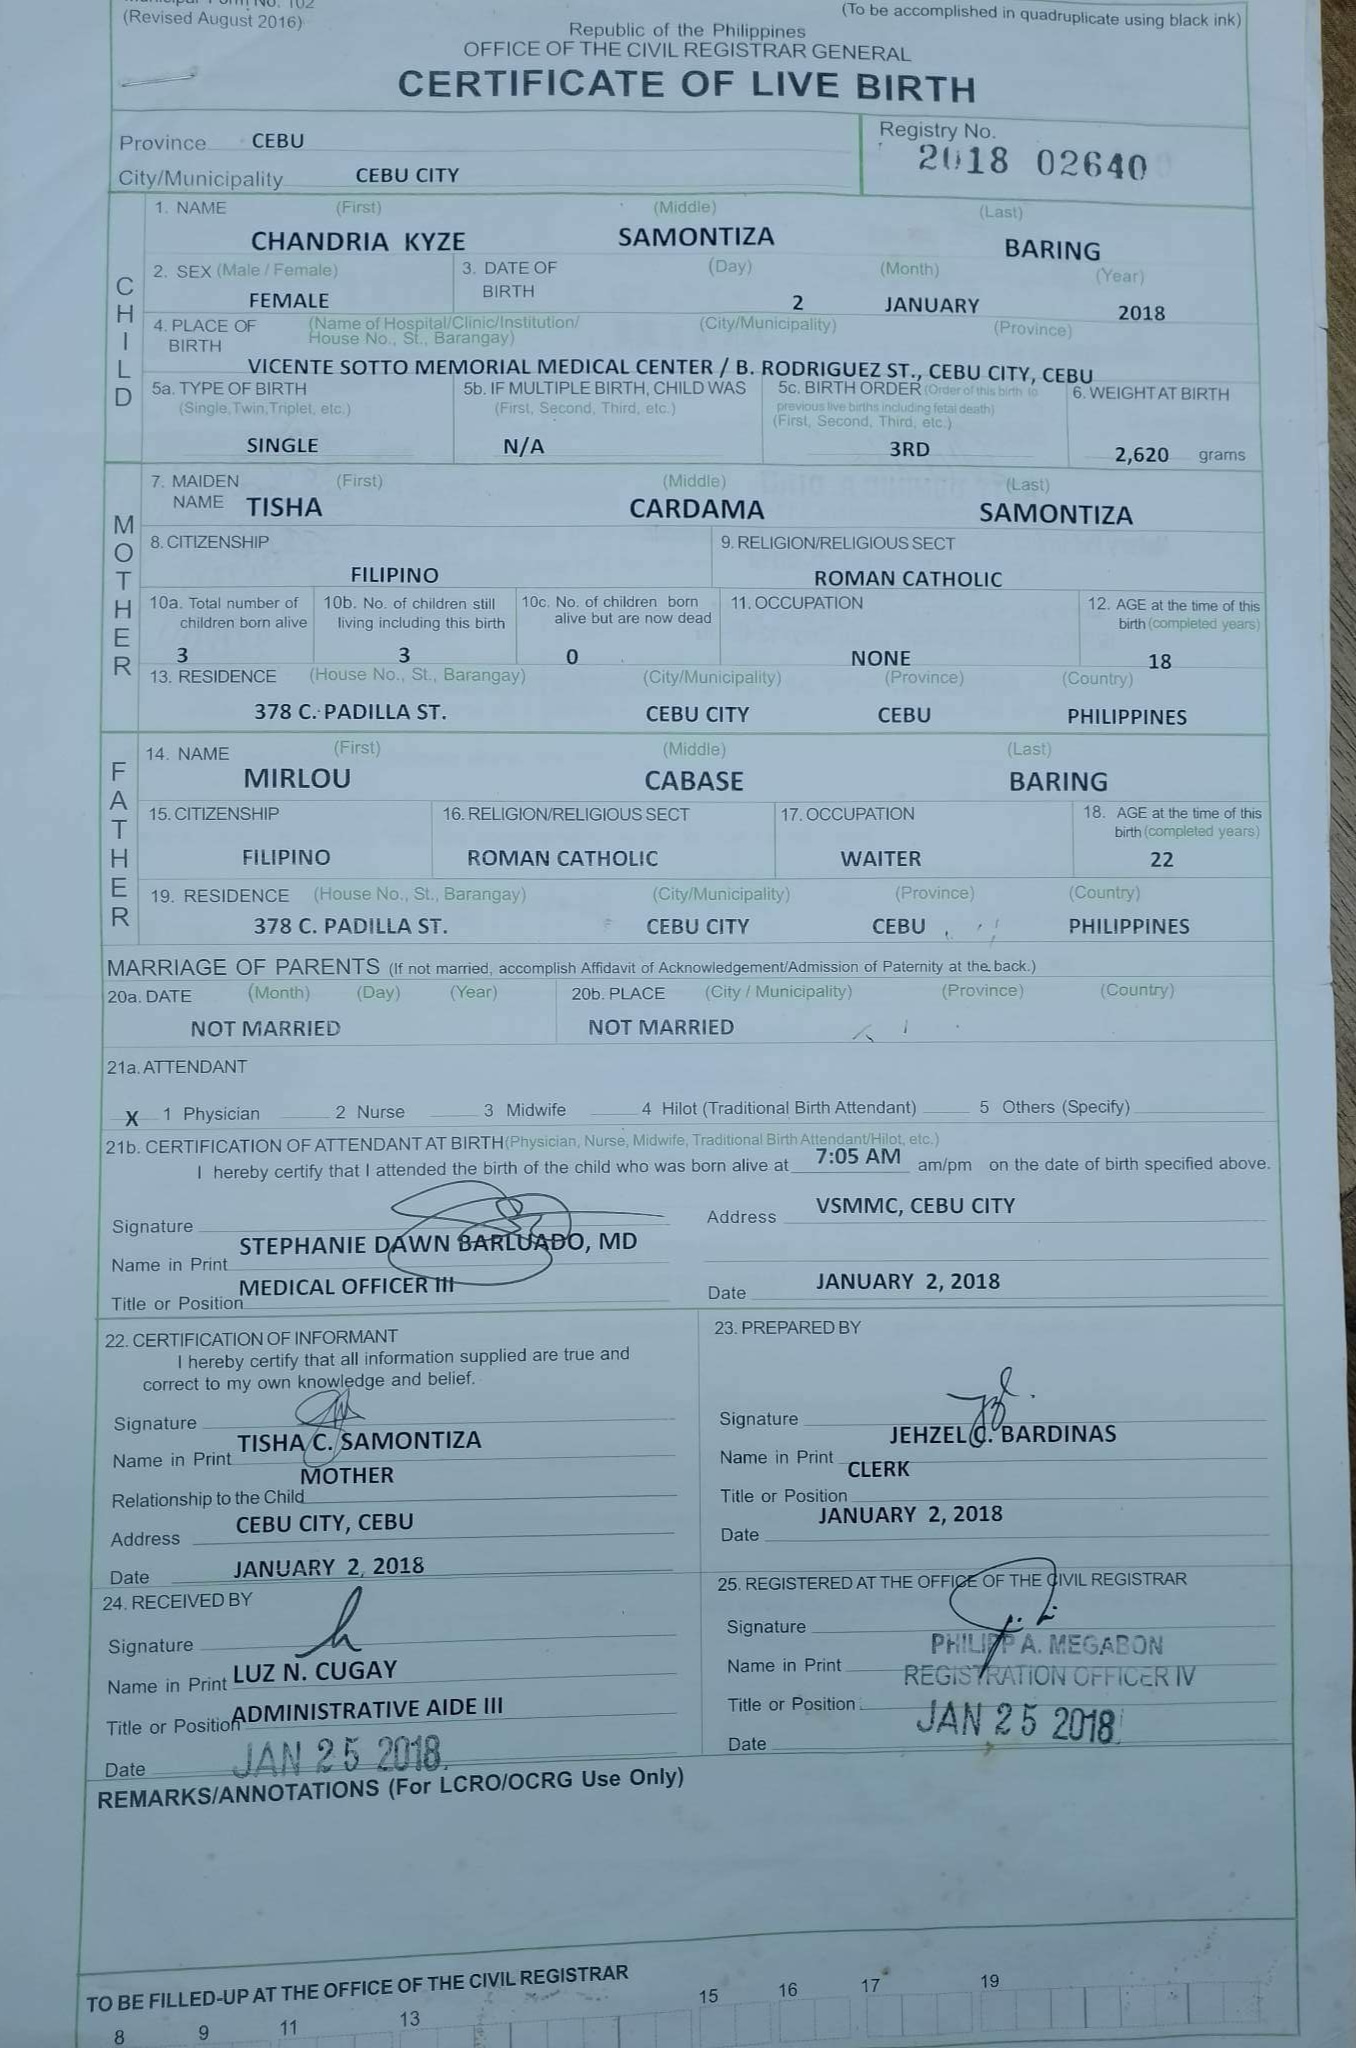 Municipal Form No. 102
(Revised August 2016)
(To be accomplished in quadruplicate using black ink)
Republic of the Philippines
OFFICE OF THE CIVIL REGISTRAR GENERAL
CERTIFICATE OF LIVE BIRTH
Province CEBU
Registry No.
2018 02640
City/Municipality CEBU CITY
CHILD
1. NAME (First) (Middle) (Last)
CHANDRIA KYZE SAMONTIZA BARING
2. SEX (Male / Female) 3. DATE OF BIRTH (Day) (Month) (Year)
FEMALE 2 JANUARY 2018
4. PLACE OF BIRTH (Name of Hospital/Clinic/Institution/ House No., St., Barangay) (City/Municipality) (Province)
VICENTE SOTTO MEMORIAL MEDICAL CENTER / B. RODRIGUEZ ST., CEBU CITY, CEBU
5a. TYPE OF BIRTH (Single,Twin,Triplet, etc.) 5b. IF MULTIPLE BIRTH, CHILD WAS (First, Second, Third, etc.) 5c. BIRTH ORDER (Order of this birth to previous live births including fetal death) (First, Second, Third, etc.) 6. WEIGHT AT BIRTH
SINGLE N/A 3RD 2,620 grams
MOTHER
7. MAIDEN NAME (First) (Middle) (Last)
TISHA CARDAMA SAMONTIZA
8. CITIZENSHIP 9. RELIGION/RELIGIOUS SECT
FILIPINO ROMAN CATHOLIC
10a. Total number of children born alive 10b. No. of children still living including this birth 10c. No. of children born alive but are now dead 11. OCCUPATION 12. AGE at the time of this birth (completed years)
3 3 0 NONE 18
13. RESIDENCE (House No., St., Barangay) (City/Municipality) (Province) (Country)
378 C. PADILLA ST. CEBU CITY CEBU PHILIPPINES
FATHER
14. NAME (First) (Middle) (Last)
MIRLOU CABASE BARING
15. CITIZENSHIP 16. RELIGION/RELIGIOUS SECT 17. OCCUPATION 18. AGE at the time of this birth (completed years)
FILIPINO ROMAN CATHOLIC WAITER 22
19. RESIDENCE (House No., St., Barangay) (City/Municipality) (Province) (Country)
378 C. PADILLA ST. CEBU CITY CEBU PHILIPPINES
MARRIAGE OF PARENTS (If not married, accomplish Affidavit of Acknowledgement/Admission of Paternity at the back.)
20a. DATE (Month) (Day) (Year) 20b. PLACE (City / Municipality) (Province) (Country)
NOT MARRIED NOT MARRIED
21a. ATTENDANT
X 1 Physician 2 Nurse 3 Midwife 4 Hilot (Traditional Birth Attendant) 5 Others (Specify)
21b. CERTIFICATION OF ATTENDANT AT BIRTH (Physician, Nurse, Midwife, Traditional Birth Attendant/Hilot, etc.)
I hereby certify that I attended the birth of the child who was born alive at 7:05 AM am/pm on the date of birth specified above.
Signature Address VSMMC, CEBU CITY
Name in Print STEPHANIE DAWN BARLUADO, MD
Title or Position MEDICAL OFFICER III Date JANUARY 2, 2018
22. CERTIFICATION OF INFORMANT
I hereby certify that all information supplied are true and
correct to my own knowledge and belief.
Signature
Name in Print TISHA C. SAMONTIZA
Relationship to the Child MOTHER
Address CEBU CITY, CEBU
Date JANUARY 2, 2018
23. PREPARED BY
Signature
Name in Print JEHZEL C. BARDINAS
Title or Position CLERK
Date JANUARY 2, 2018
24. RECEIVED BY
Signature
Name in Print LUZ N. CUGAY
Title or Position ADMINISTRATIVE AIDE III
Date JAN 25 2018
25. REGISTERED AT THE OFFICE OF THE CIVIL REGISTRAR
Signature
Name in Print PHILIPP A. MEGABON
Title or Position REGISTRATION OFFICER IV
Date JAN 25 2018
REMARKS/ANNOTATIONS (For LCRO/OCRG Use Only)
TO BE FILLED-UP AT THE OFFICE OF THE CIVIL REGISTRAR
8 9 11 13 15 16 17 19